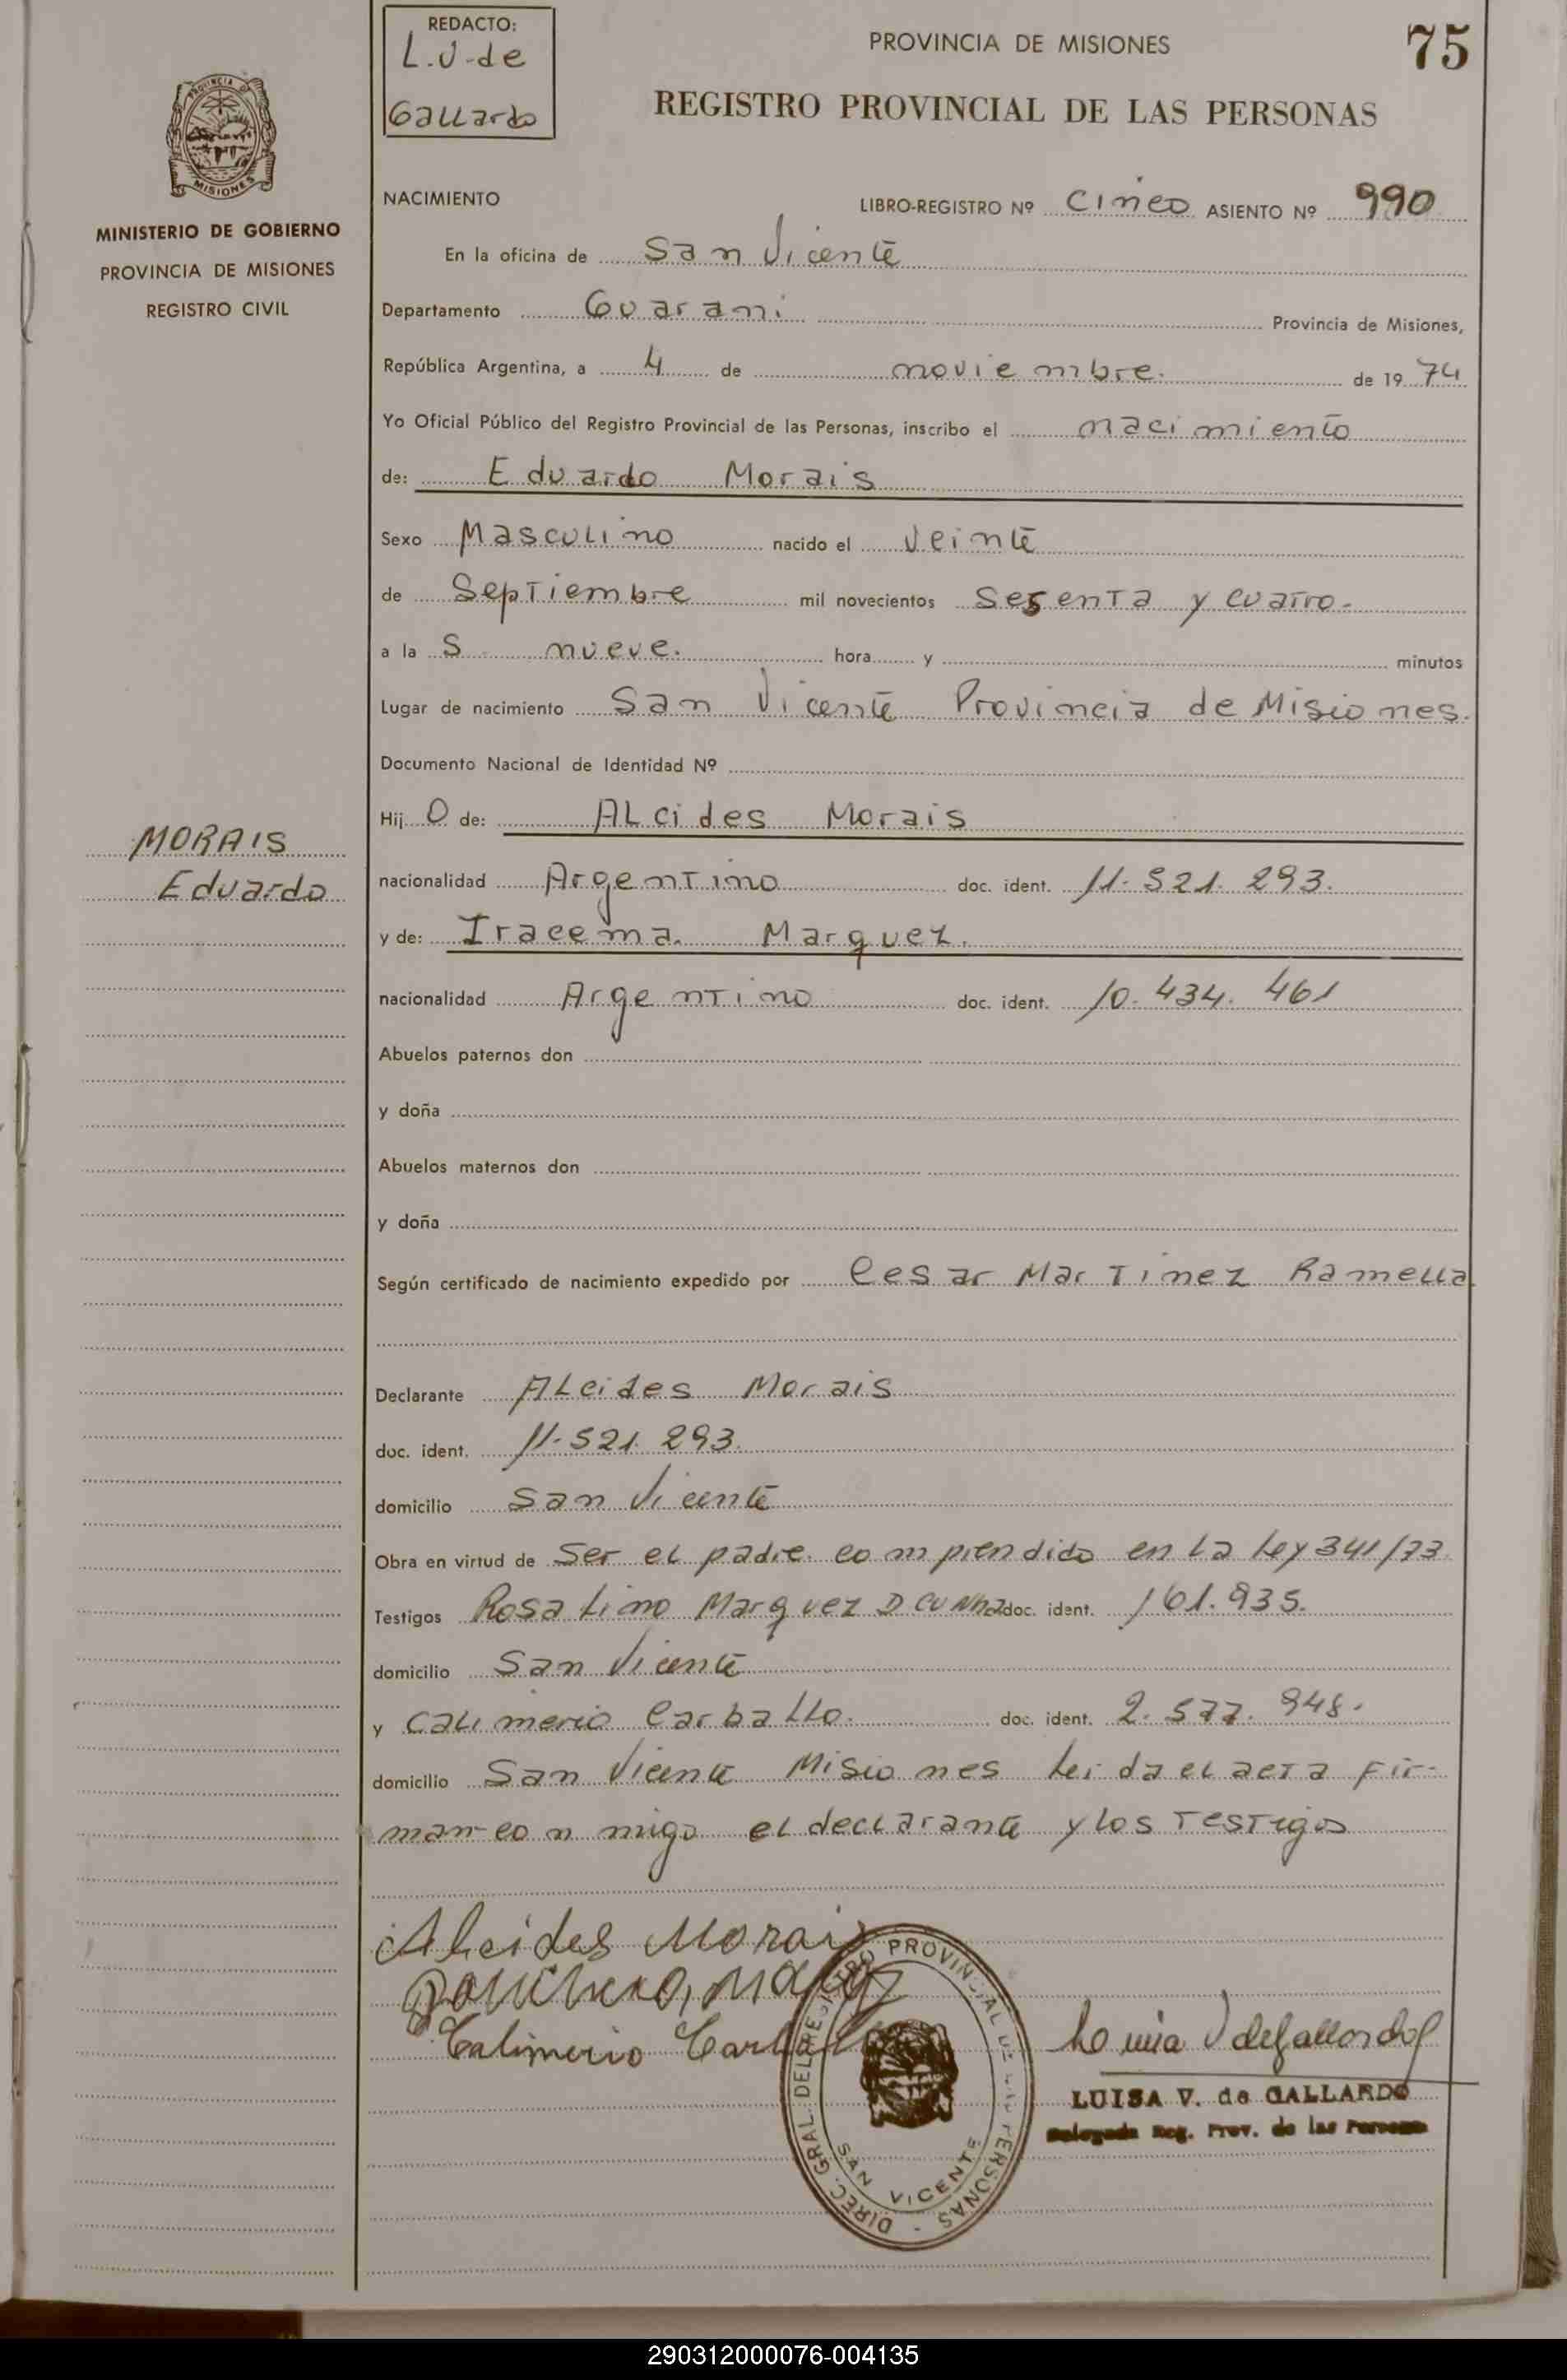 REDACTO:
L.V-de
Gallardo
PROVINCIA DE MISIONES
75
REGISTRO PROVINCIAL DE LAS PERSONAS
PROVINCIA DE
MISIONES
MINISTERIO DE GOBIERNO
PROVINCIA DE MISIONES
REGISTRO CIVIL
NACIMIENTO
LIBRO-REGISTRO Nº Cinco ASIENTO Nº 990
En la oficina de San Vicente
Departamento Guarani Provincia de Misiones,
República Argentina, a 4 de noviembre. de 19 74
Yo Oficial Público del Registro Provincial de las Personas, inscribo el nacimiento
de: Eduardo Morais
Sexo Masculino nacido el Veinte
de Septiembre mil novecientos Sesenta y cuatro.
a la s nueve. hora y minutos
Lugar de nacimiento San Vicente Provincia de Misiones.
Documento Nacional de Identidad Nº
Hij o de: Alcides Morais
MORAIS
Eduardo
nacionalidad Argentino doc. ident. 11.521.293.
y de: Iracema. Marquez.
nacionalidad Argentino doc. ident. 10.434.461
Abuelos paternos don
y doña
Abuelos maternos don
y doña
Según certificado de nacimiento expedido por Cesar Martinez Ramella
Declarante Alcides Morais
doc. ident. 11.521.293.
domicilio San Vicente
Obra en virtud de Ser el padre. comprendido en la Ley 341/73
Testigos Rosalino Marquez D Cunha doc. ident. 161.935.
domicilio San Vicente
y Calimerio Carballo. doc. ident. 2.577.948.
domicilio San Vicente Misiones Leida el acta Fir-
man conmigo el declarante y los Testigos
Alcides Morais
Calimerio
DIREC. GRAL. DEL REGISTRO PROVINCIAL DE LAS PERSONAS -
SAN VICENTE
LUISA V. de GALLARDO
Delegada Reg. Prov. de las Personas
290312000076-004135